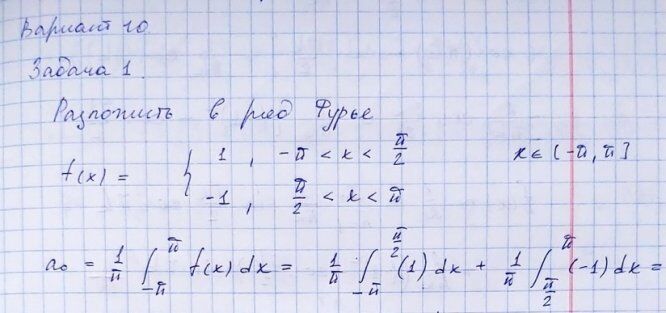 Вариант 10
Задача 1.
Разложить в ряд Фурье
f(x) = { 1, -π < x < π/2 x ∈ (-π, π]
-1, π/2 < x < π
a₀ = 1/π ∫_{-π}^{π} f(x) dx = 1/π ∫_{-π}^{π/2} (1) dx + 1/π ∫_{π/2}^{π} (-1) dx =